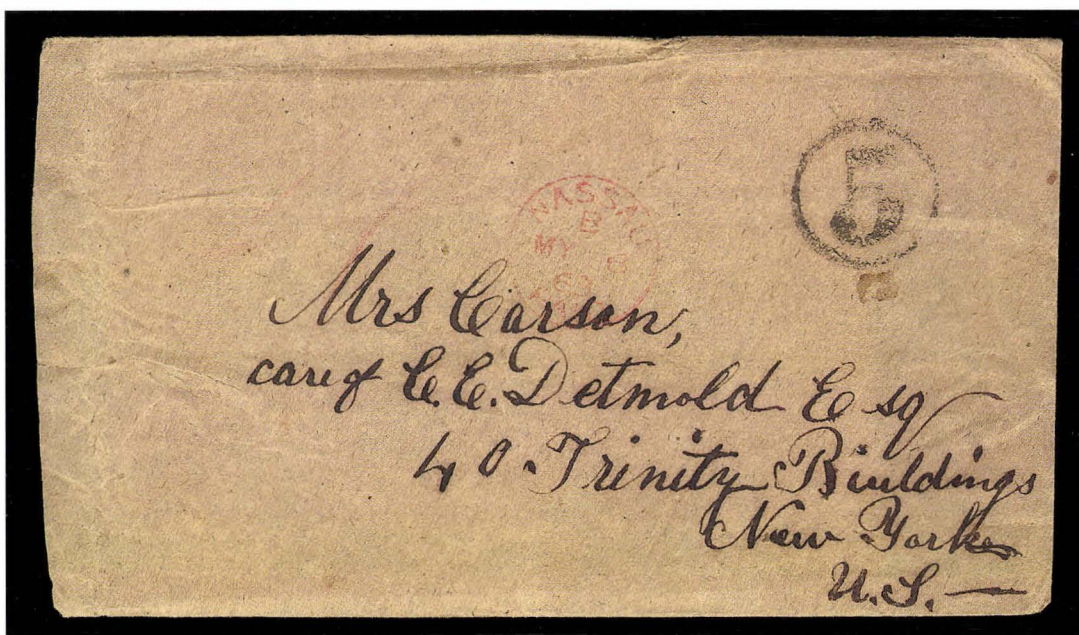 5
NASSAU
B
MY 8
63
Mrs Carson,
care of C.E. Detmold Esq
40. Trinity Buildings
New York
U.S. —